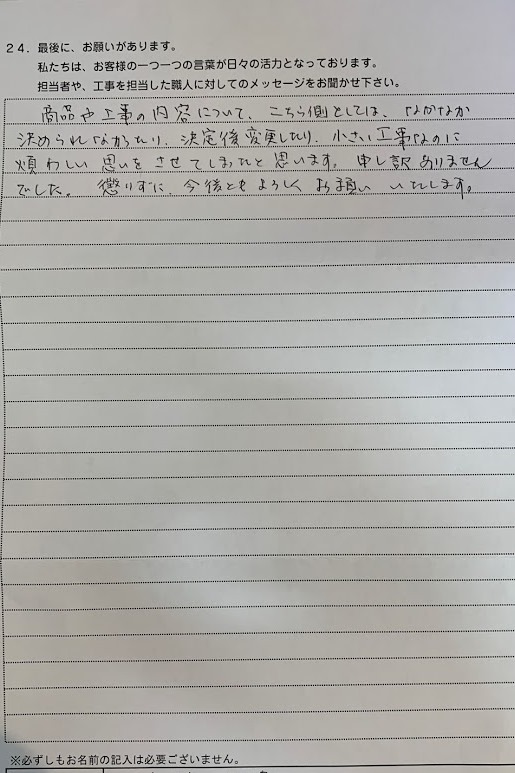 ２４．最後に、お願いがあります。
私たちは、お客様の一つ一つの言葉が日々の活力となっております。
担当者や、工事を担当した職人に対してのメッセージをお聞かせ下さい。
商品や工事の内容について、こちら側としては、なかなか
決められなかったり、決定後変更したり、小さい工事なのに
煩わしい思いをさせてしまったと思います。申し訳ありません
でした。懲りずに、今後ともよろしくお願いいたします。
※必ずしもお名前の記入は必要ございません。